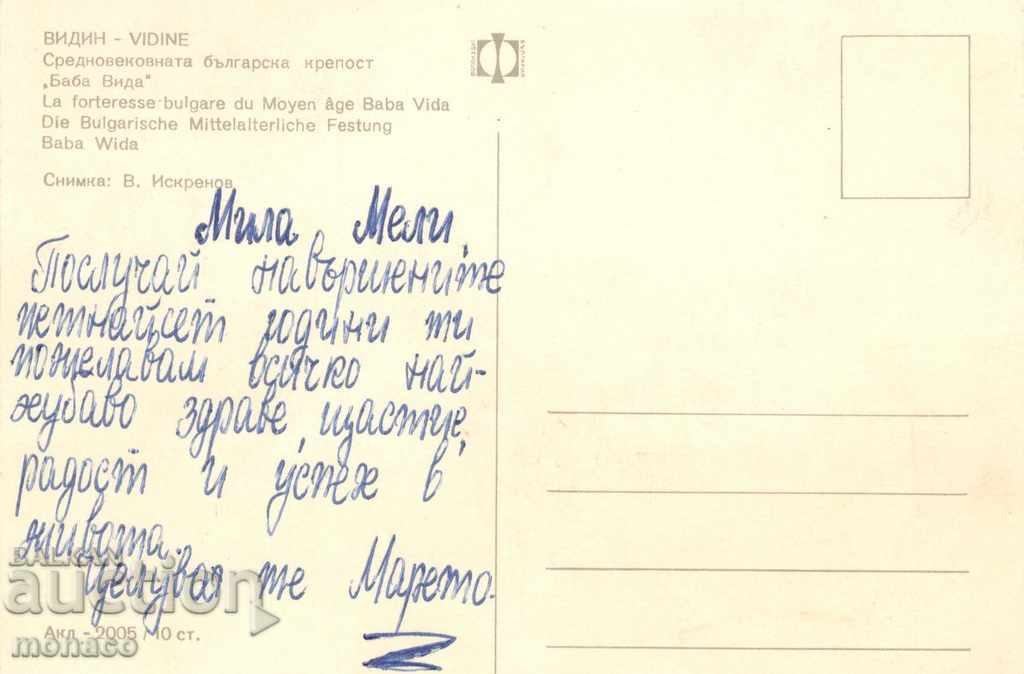 ВИДИН - VIDINE
Средновековната българска крепост
„Баба Вида"
La forteresse bulgare du Moyen âge Baba Vida
Die Bulgarische Mittelalterliche Festung
Baba Wida
Снимка: В. Искренов
Мила Мели,
Послучай навършените
петнайсет години ти
пожелавам всичко най-
хубаво здраве, щастие,
радост и успех в
живота.
Целувам те Марето.
BALKAN
auction
Акл - 2005 / 10 ст.
monaco